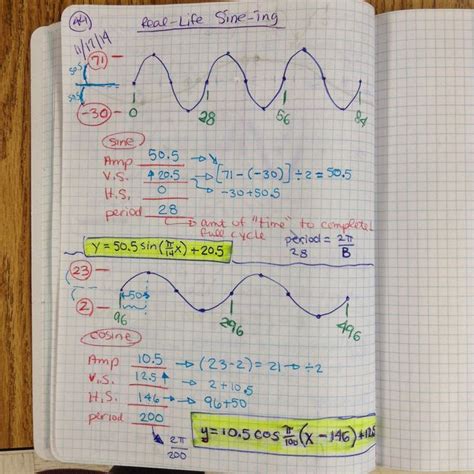 49
Real-Life Sine-ing
11/17/14
71
50.5
50.5
-30
0 28 56 84
sine
Amp 50.5 → [71-(-30)]÷2=50.5
V.S. ↑20.5 → -30+50.5
H.S. 0
period 28
→ amt of "time" to complete 1
full cycle
period = 2π/B
28
y=50.5 sin(π/14 x)+20.5
23
←50→
2
96 296 496
cosine
Amp 10.5 → (23-2)=21→÷2
V.S. 12.5↑ → 2+10.5
H.S. 146→ → 96+50
period 200
2π/200
y=10.5 cos π/100 (x-146)+12.5